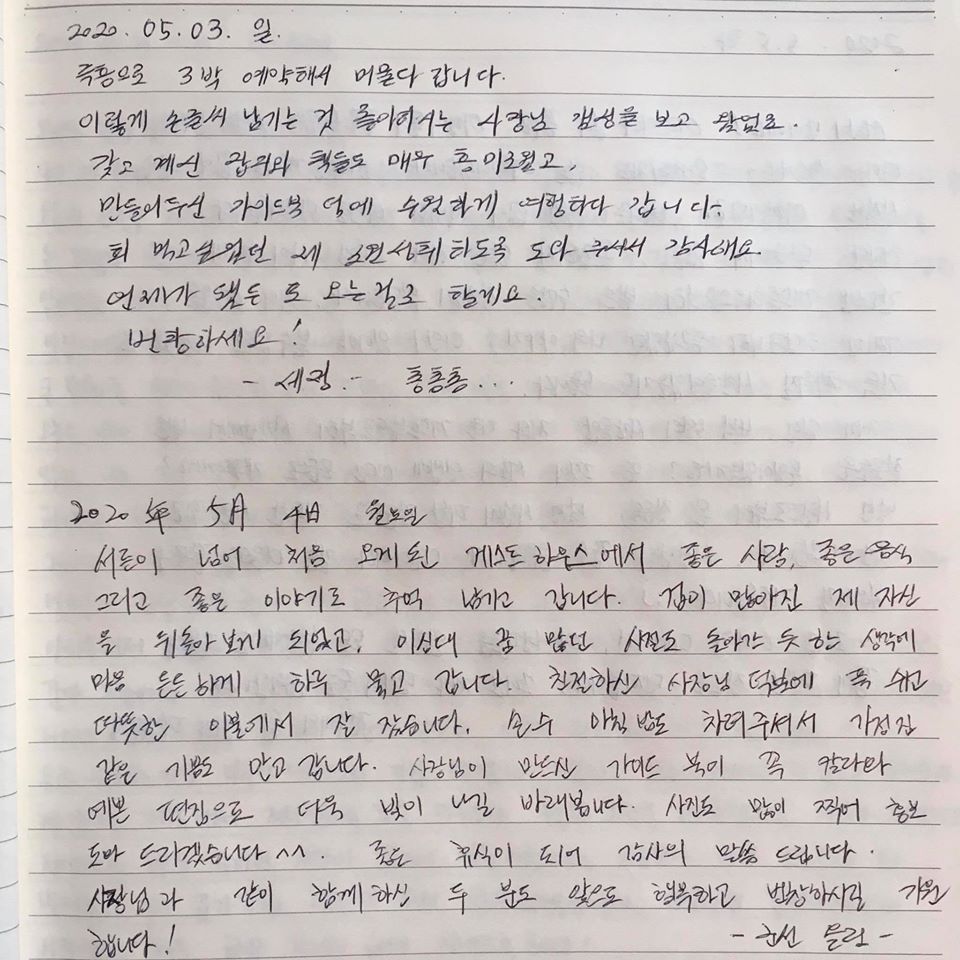 2020. 05. 03. 일.
즉흥으로 3박 예약해서 머물다 갑니다.
이렇게 손글씨 남기는 것 좋아하시는 사장님 감성을 보고
갖고 계신 책들도 매우 흥미로웠고,
만들어두신 가이드북 덕에 수월하게 여행하다 갑니다.
회 먹고싶었던 제 소원성취하도록 도와주셔서 감사해요.
언제가 됐든 또 오는걸로 할게요.
번창하세요!
- 세정 - 총총총...
2020年 5月 4日 월요일
서른이 넘어 처음 오게된 게스트하우스에서 좋은 사람, 좋은 음식
그리고 좋은 이야기로 추억 남기고 갑니다. 겁이 많아진 제 자신
을 뒤돌아보게 되었고, 이십대 꿈 많던 시절로 돌아간 듯한 생각에
마음 든든하게 하루 묵고 갑니다. 친절하신 사장님 덕분에 푹 쉬고
따뜻한 이불에서 잘 잤습니다. 손수 아침밥도 차려주셔서 가정집
같은 기분도 안고 갑니다. 사장님이 만드신 가이드 북이 꼭 칼라와
예쁜 편집으로 더욱 빛이 나길 바래봅니다. 사진도 많이 찍어 홍보
도와 드리겠습니다^^. 좋은 휴식이 되어 감사의 말씀 드립니다.
사장님과 같이 함께하신 두 분도 앞으로 행복하고 번창하시길 기원
합니다!